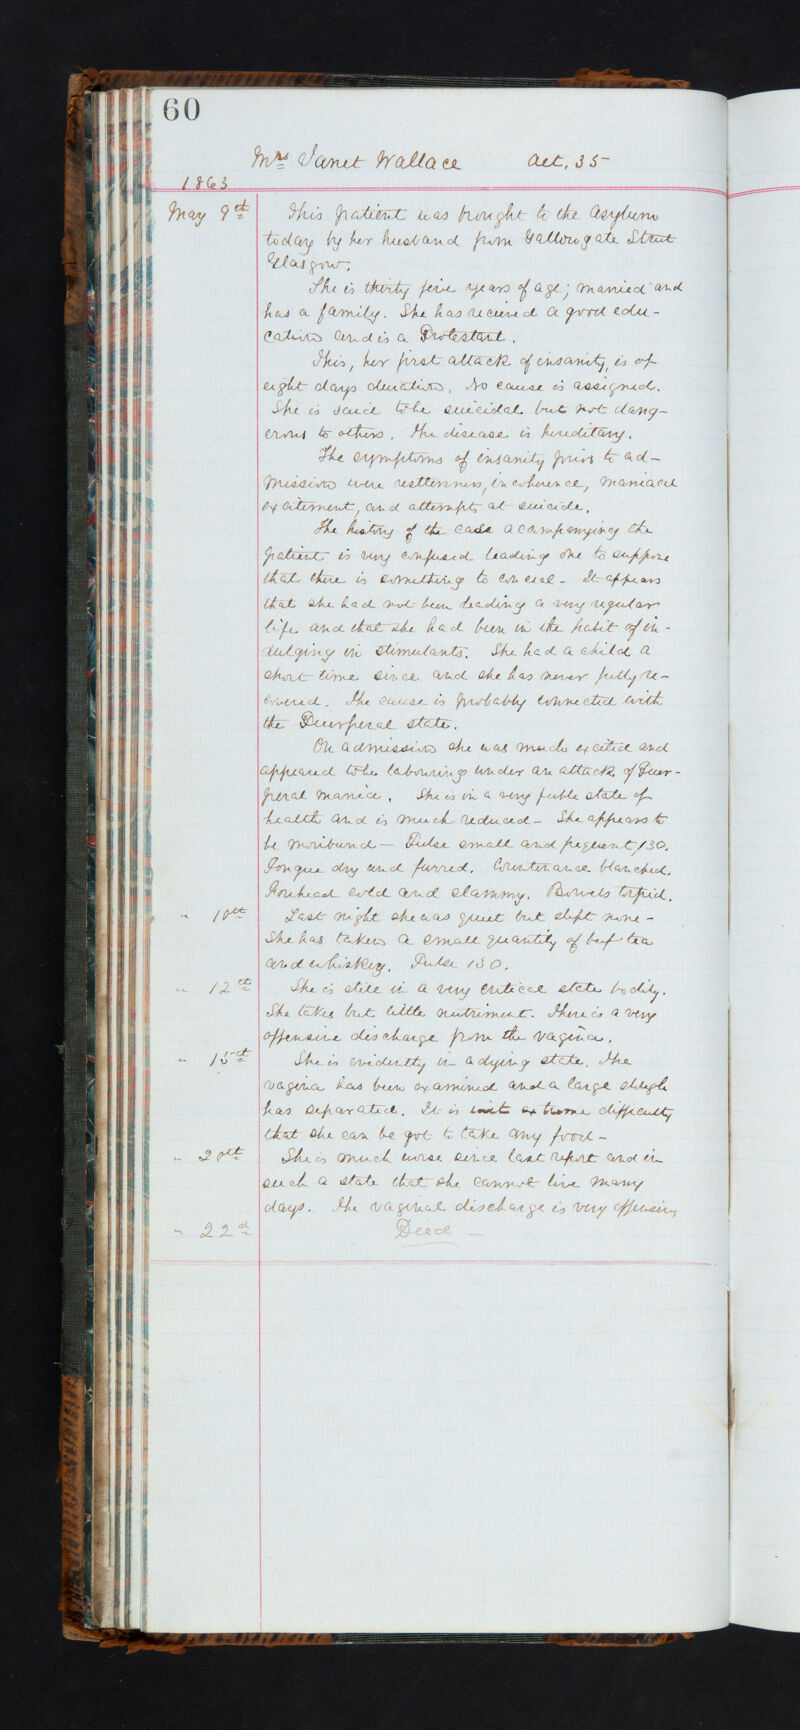 60
Mrs Janet Wallace aet. 35
1863
May 9th This patient was brought to the Asylum
today by her husband from Gallowgate Street
Glasgow.
She is thirty five years of age; married and
has a family. She has recieved a good edu-
cation and is a Protestant.
This, her first attack of insanity, is of
eight days duration. No cause is assigned.
She is said to be suicidal but not dang-
erous to others. The disease is hereditary.
The symptoms of insanity prior to ad-
mission were restlessness, incoherence, maniacal
excitement, and attempts at suicide.
The history of the case accompanying the
patient is very confused leading one to suppose
that there is something to conceal - It appears
that she had not been leading a very regular
life and that she had been in the habit of in-
dulging in stimulants. She had a child a
short time since and she has never fully re-
covered. The cause is probably connected with
the Puerperal state.
On admission she was much excited and
appeared to be labouring under an attack of Puer-
peral mania. She is in a very feeble state of
health and is much reduced - She appears to
be moribund - Pulse small and frequent, 130.
Tongue dry and furred. Countenance blanched.
Forehead cold and clammy. Bowels torpid.
" 10th Last night she was quiet but slept none -
She has taken a small quantity of beef tea
and whiskey. Pulse 130.
" 12th She is still in a very critical state bodily.
She takes but little nutriment. There is a very
offensive discharge from the vagina.
" 15th She is evidently in a dying state. The
vagina has been examined and a large slough
has separated. It is with extreme difficulty
that she can be got to take any food -
" 20th She is much worse since last report and in
such a state that she cannot live many
days. The vaginal discharge is very offensive
" 22d Died -